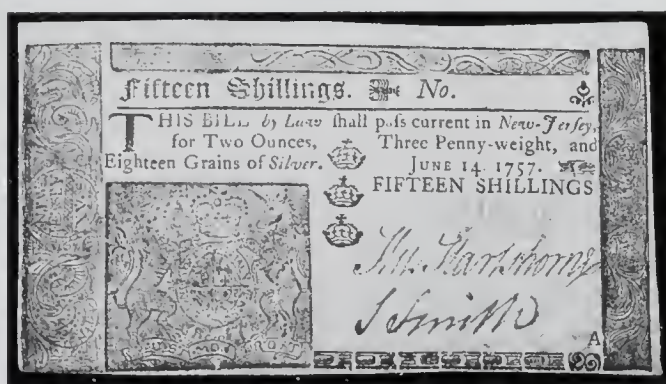 Fifteen Shillings. No.
THIS BILL by Law ſhall paſs current in New-Jerſey,
for Two Ounces, Three Penny-weight, and
Eighteen Grains of Silver. JUNE 14. 1757.
FIFTEEN SHILLINGS
Hartshorne
S Smith
A